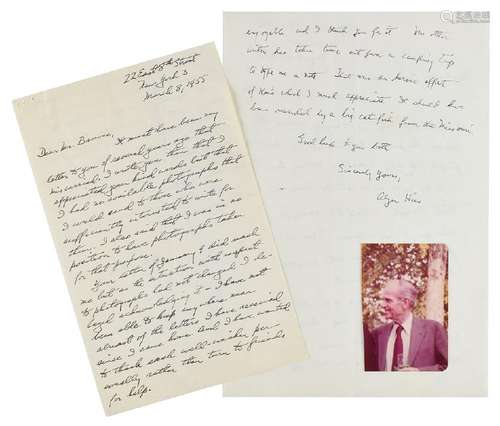 22 East 8th Street
New York 3
March 8, 1955
Dear Mr.
It must have been my
letter to you of several years ago that
miscarried. I wrote you then that I
appreciated your kind words but that
I had no available photographs that
I could send to those who were
sufficiently interested to write for
them. I also said that I was in no
position to have photographs taken
for that purpose.
Your letter of January 8 did reach
me but as the situation with respect
to photographs had not changed I
acknowledging it. I have not
been able to keep any where near
abreast of the letters I have received
since I came home and I have wanted
to thank each well-wisher per
sonally rather than turn to friends
for help.
enjoyable and I thank you for it. The other
writer has taken time out from a camping trip
to type me a note. That was an heroic effort
of his which I much appreciate. It should have
been rewarded by a big catfish from the Missouri.
Good luck to you both
Sincerely yours,
Alger Hiss